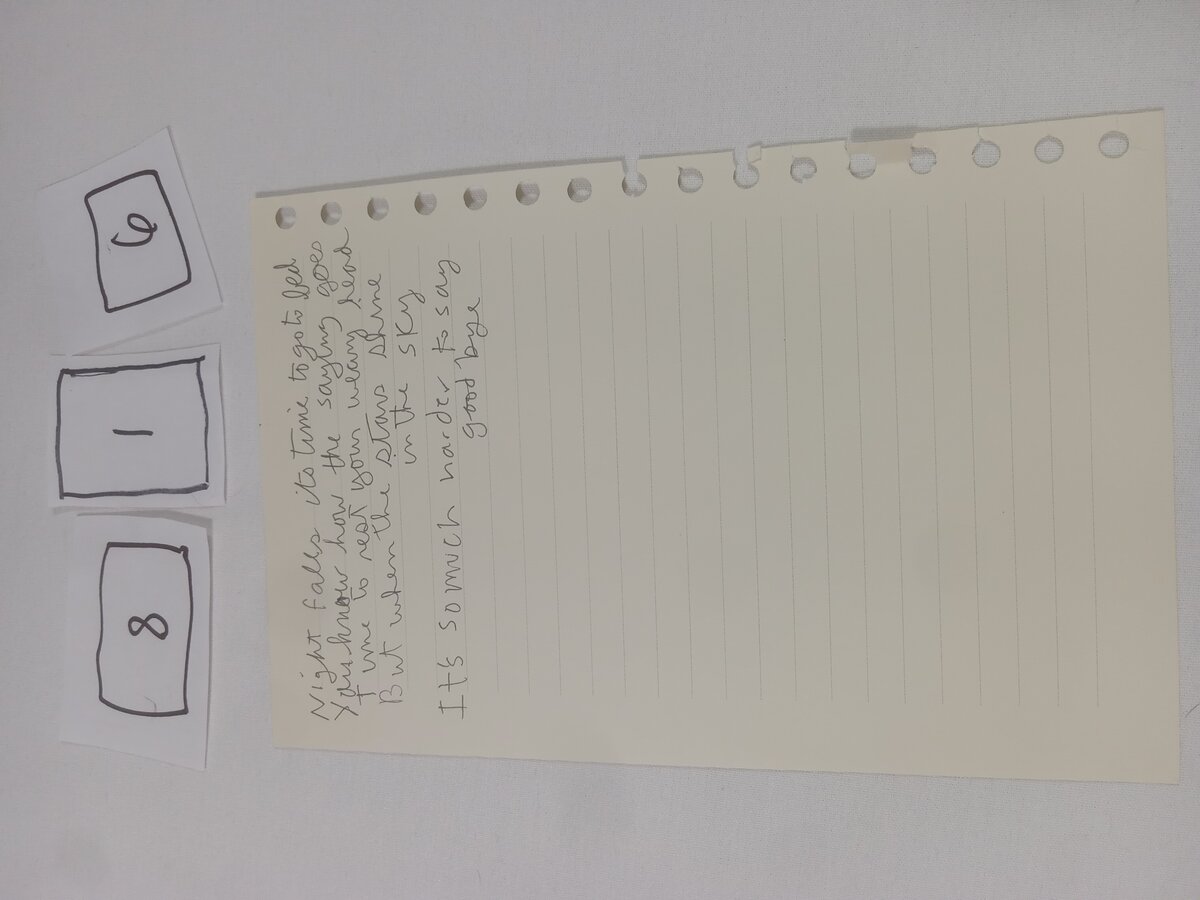 8 1 6
Night falls its time to go to bed
You know how the saying goes
Time to rest your weary head
But when the stars shine
in the sky
It's so much harder to say
good bye